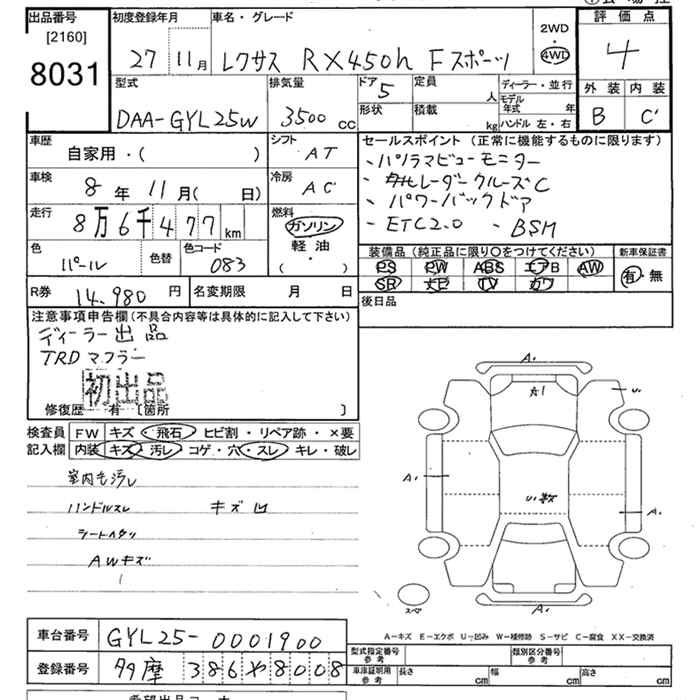 出品番号 初度登録年月 車名・グレード 2WD ・ 4WD 評価点
[2160] 8031 27 11月 レクサス RX450h Fスポーツ 4
型式 排気量 ドア 5 定員 人 ディーラー・並行 外装 内装
DAA-GYL25W 3500 cc 形状 積載 kg モデル年式 年 ハンドル 左・右 B C'
車歴 自家用・( ) シフト AT セールスポイント (正常に機能するものに限ります)
- パノラマビューモニター
車検 8年 11月( 日) 冷房 AC
レーダークルーズC
- パワーバックドア
走行 8万6千477km 燃料 ガソリン 軽油 ( ・ )
- ETC2.0 - BSM
色 パール 色替 色コード 083
装備品 (純正品に限り〇をつけてください) 新車保証書
PS PW ABS エアB AW 有・無
SR ナビ TV カワ
R券 14,980円 名変期限 月 日 後日品
注意事項申告欄(不具合内容等は具体的に記入して下さい)
ディーラー出品
TRDマフラー
初出品
修復歴 有 [箇所 ]
検査員記入欄 FW キズ・飛石・ヒビ割・リペア跡・×要
内装 キズ・汚レ・コゲ・穴・スレ・キレ・破レ
室内色汚レ
ハンドルスレ キズ凹
シートヘタリ
AWキズ
A.
U.
A.
U.
A.
A.
スペア
A-キズ E-エクボ U-凹み W-補修跡 S-サビ C-腐食 XX-交換済
車台番号 GYL25-0001900 型式指定番号 参考 類別区分番号 参考
登録番号 多摩 386や8008 車庫証明用 参考 長さ cm 幅 cm 高さ cm